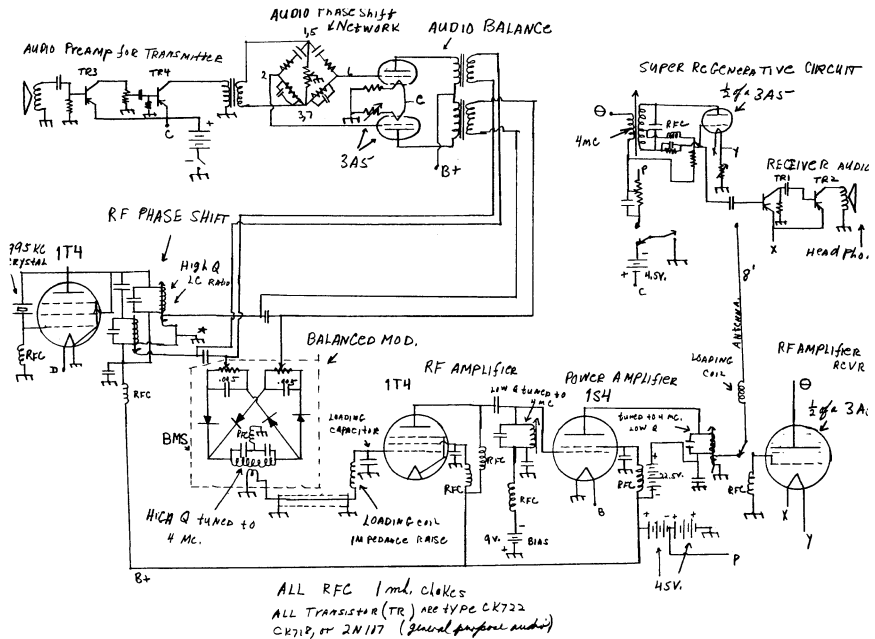 AUDIO PHASE SHIFT
NETWORK
AUDIO BALANCE
AUDIO PREAMP FOR TRANSMITTER
TR3
TR4
C
+
-
1,5
2
6
3,7
C
3A5
B+
SUPER REGENERATIVE CIRCUIT
1/2 of a 3A5
θ
4MC
RFC
X
Y
P
RECEIVER AUDIO
TR1
TR2
X
HEAD PHO
-
+
4.5V.
C
RF PHASE SHIFT
995 KC
CRYSTAL
1T4
HIGH Q
LC RATIO
RFC
D
RFC
BALANCED MOD.
.005
.005
RFC
BMS
HIGH Q TUNED TO
4 MC.
LOADING
CAPACITOR
LOADING COIL
IMPEDANCE RAISE
RF AMPLIFIER
1T4
LOW Q TUNED TO
4 MC
RFC
RFC
RFC
9V.
BIAS
POWER AMPLIFIER
1S4
TUNED TO 4 MC.
LOW Q
22.5V.
RFC
B
8'
ANTENNA
LOADING
COIL
RF AMPLIFIER
RCVR
1/2 of a 3A
θ
RFC
X
Y
45V.
P
B+
ALL RFC 1 mh. chokes
ALL TRANSISTOR (TR) are type CK722
CK718, or 2N107 (general purpose audio)